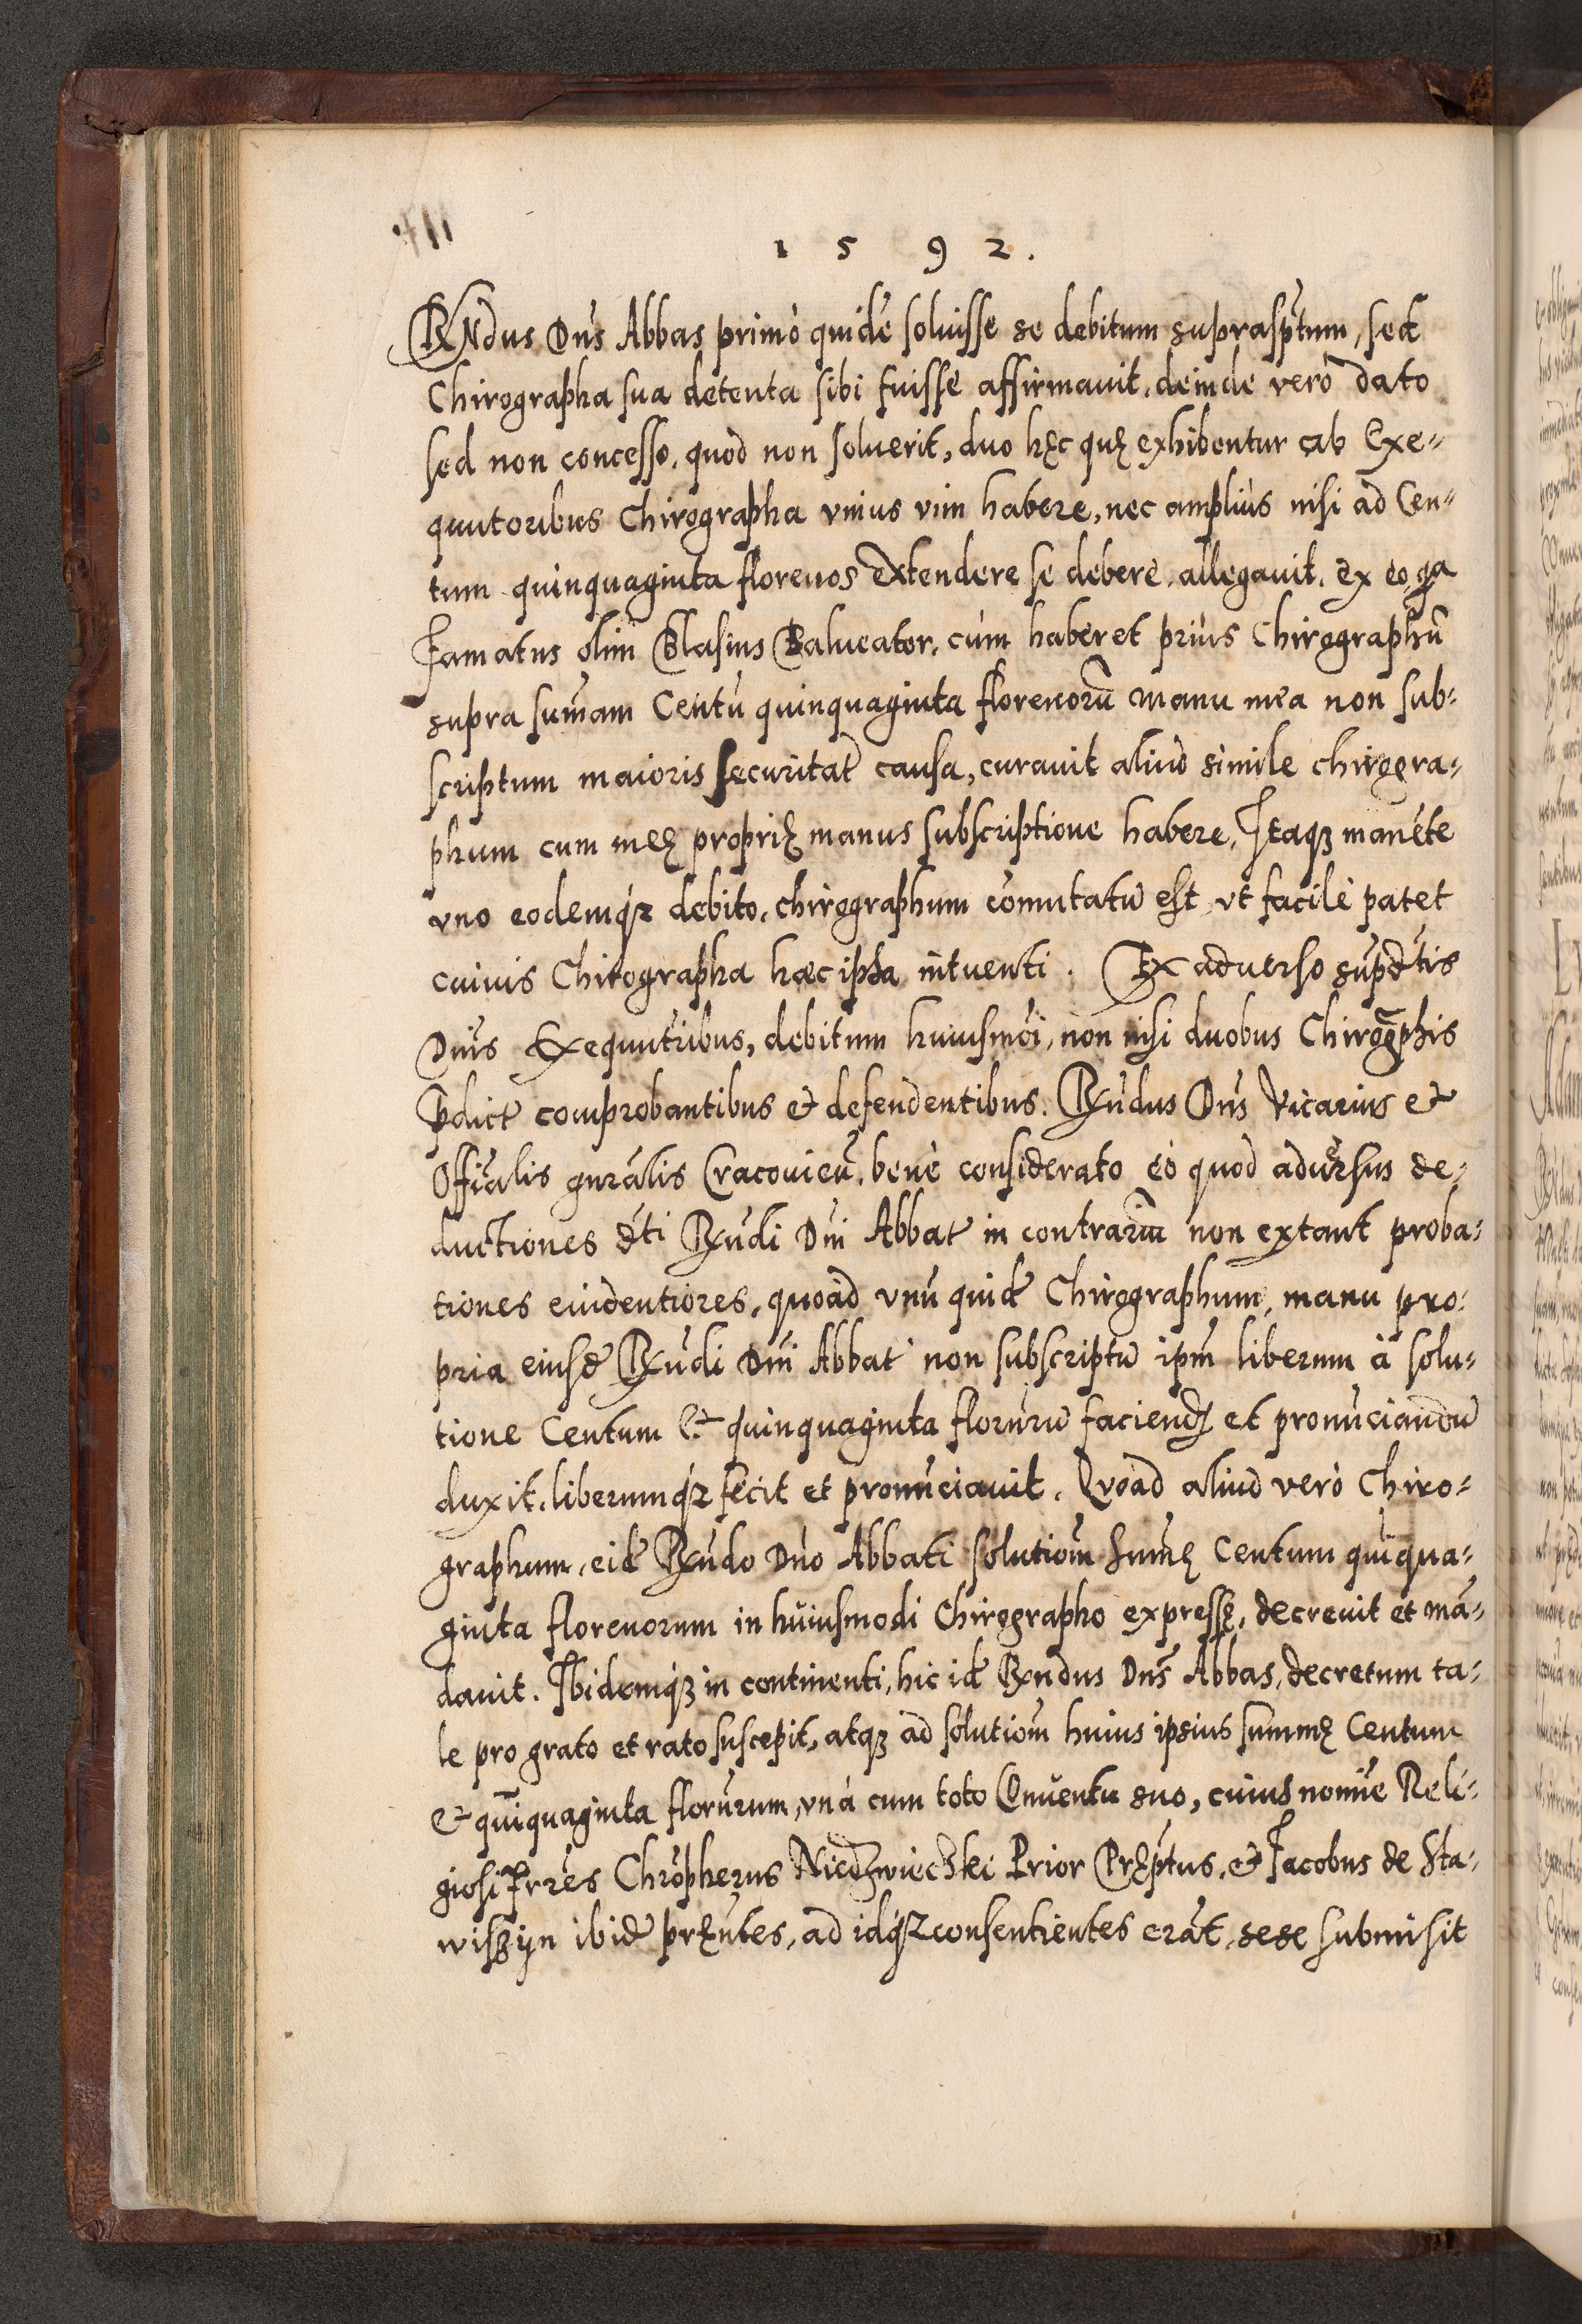 1592.
RNdus Dn̄s Abbas primò quidē soluisse se debitum suprasp̄tum, sed
Chirographa sua detenta sibi fuisse affirmauit, deinde verò dato
sed non concesso, quod non soluerit, duo hęc quę exhibentur ab Exe-
quutoribus Chirographa vnius vim habere, nec amplius nisi ad Cen-
tum quinquaginta florenos extendere se debere, allegauit, ex eo qa
Famatus olim Blasius Balneator, cùm haberet prius Chirographū
supra sum̄am Centū quinquaginta florenorū manu mea non sub-
scriptum maioris securitat̄ causa, curauit aliud simile chirogra-
phum cum meę proprię manus subscriptione habere, Itaqꝫ manēte
vno eodemqꝫ debito, chirographum com̄utatū est, vt facilè patet
cuiuis Chirographa haec ipsa intuenti. Ex aduerso sup̄d̄tis
Dn̄is Exequut̄ribus, debitum huiusmōi, non nisi duobus Chirogr̄aphis
p̄dict̄ comprobantibus et defendentibus. Rn̄dus Dn̄s Vicarius et
Offiālis gn̄rālis Cracouień, benè considerato eo quod aduersus de-
ductiones d̄ti Rn̄di Dn̄i Abbat̄ in contrariū non extant proba-
tiones euidentiores, quoad vnū quidē Chirographum, manu pro-
pria eiusdē Rn̄di Dn̄i Abbat̄ non subscriptū ip̄m liberum à solu-
tione Centum et quinquaginta florn̄rū faciendū et pronūciandū
duxit, liberumqꝫ fecit et pronūciauit. Quoad aliud verò Chiro-
graphum, eidē Rn̄do Dn̄o Abbati solutiōm sum̄ę Centum quīqua-
ginta florenorum in huiusmodi Chirographo expressę, decreuit et mā-
dauit. Ibidemqꝫ in continenti, hic idē Rndus Dn̄s Abbas, decretum ta-
le pro grato et rato suscepit, atqꝫ ad solutiōm huius ipsius summę Centum
et quīquaginta florn̄rum, vnà cum toto Conuentu suo, cuius nomīe Reli-
giosi Fr̄res Chrōpherus Niedzwieczki Prior Pręp̄tus, et Jacobus de Sta-
wiszyn ibidē pręn̄tes, ad idqꝫ consentientes erāt, sese submisit